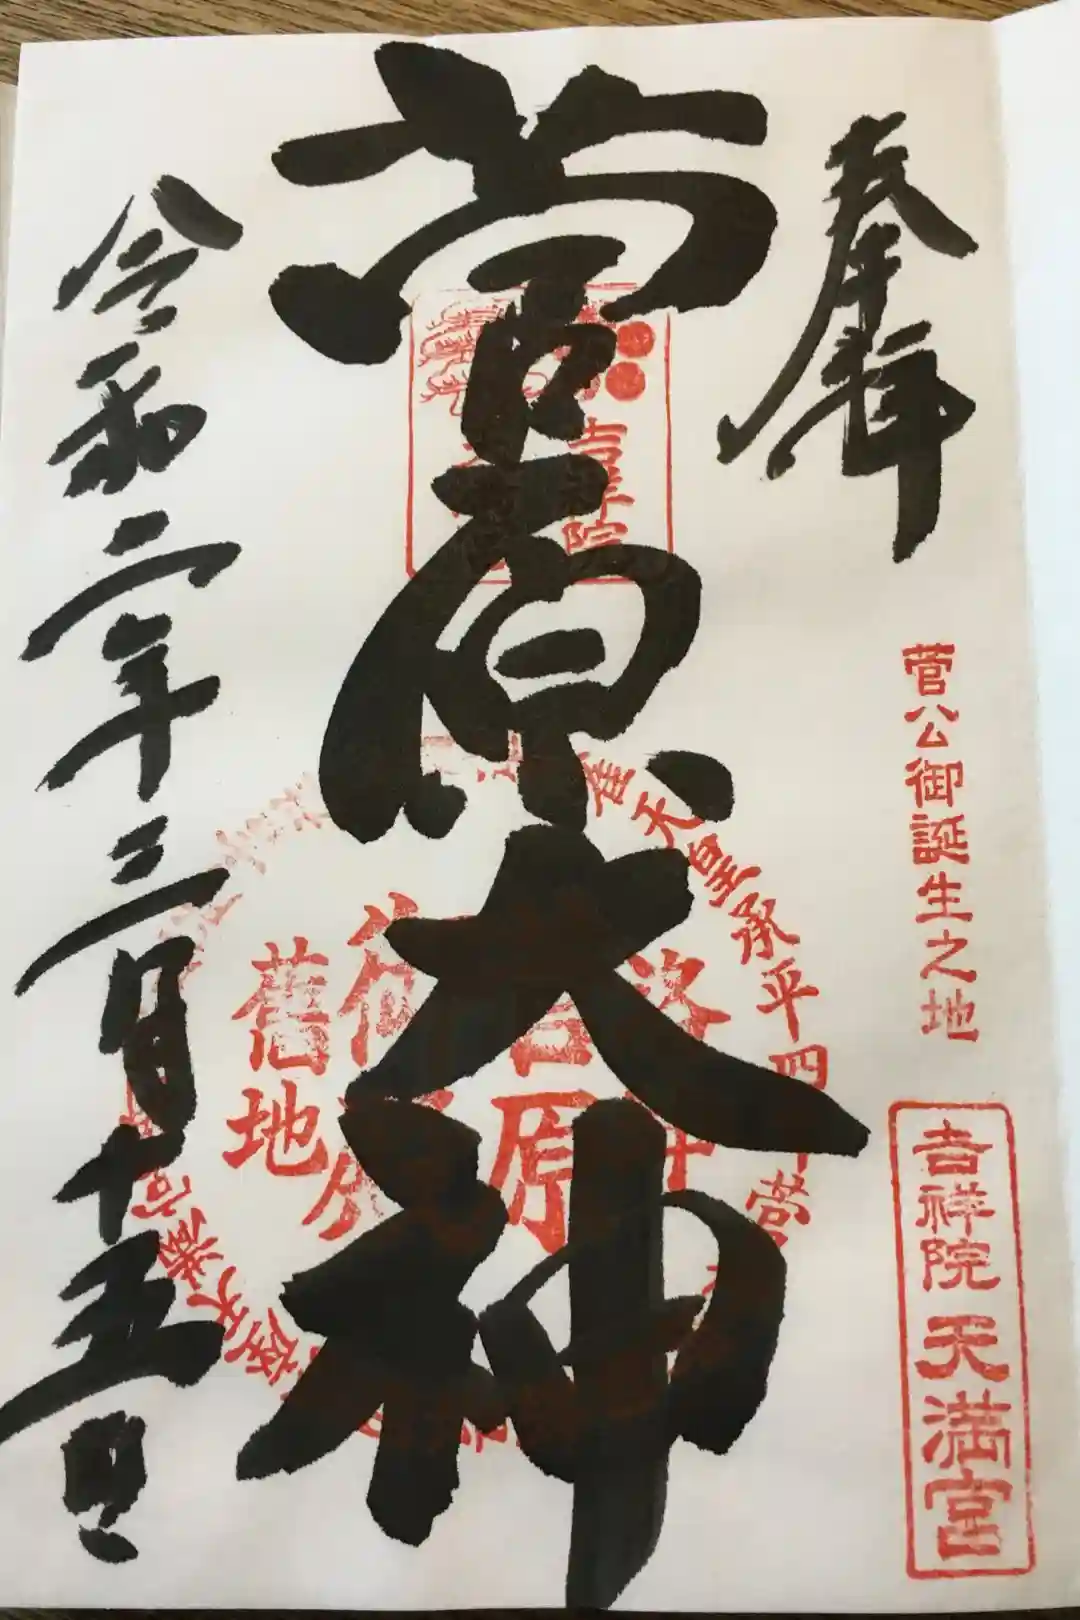 奉拝
菅公御誕生之地
吉祥院天満宮
菅原大神
吉祥院
雀天皇承平四
原
舊地
令和二年三月十五日